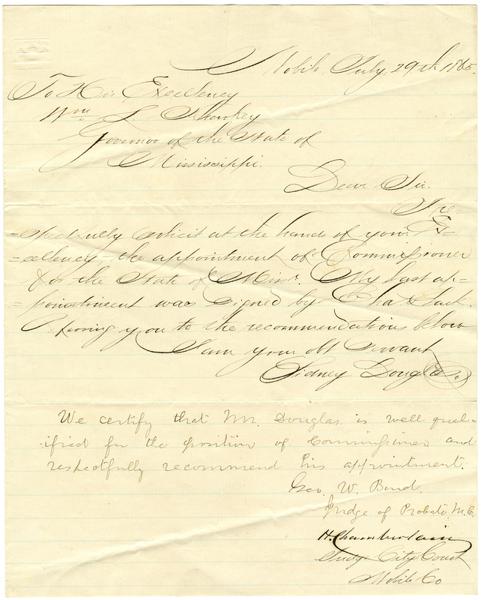 Mobile July 29th 1865.
To His Excellency
Wm L Sharkey
Governor of the State of
Mississippi.
Dear Sir.
I re=
=spectfully solicit at the hands of your Ex=
=cellency the appointment of Commissioner
for the State of Miss. My last ap=
=pointment was signed by Chas Clark
you to the recommendations below
I am your obt servant
Sidney Douglas
We certify that Mr. Douglas is well qual-
ified for the position of Commissioner and
respectfully recommend his appointment.
Geo. W. Bond.
Judge of Probate M.C.
H. Chamberlain
Judge City Court
Mobile Co